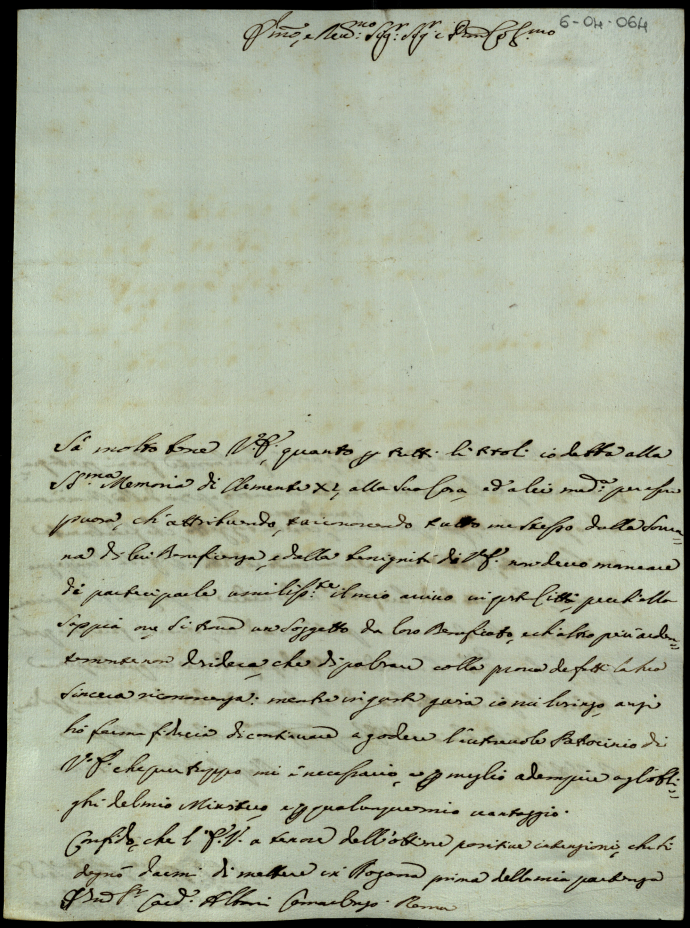 6-04-064
Emo, e Rev.mo Sig.r Sig.r e Pron Col.mo
Sà molto bene V.E. quanto p tutti li titoli io debba alla
SS.ma Memoria di Clemente XI, alla Sua Casa, ed a lei med.a per esser
che attribuendo, e riconoscendo tutto me stesso dalla Sovra=
na di lui Beneficenza, e dalla benignità di V.E. non devo mancare
di participarle umiliss.te il mio arrivo in q.sta Città, perch'ella
sappia ove si trova un Soggetto da loro Beneficato, e ch'altro più arden=
temente non desidera, che di palesare colla prova de fatti la sua
sincera riconoscenza: mentre in questa guisa io mi lusingo, anzi
hò ferma fiducia di continuare a godere l'autorevole Patrocinio di
V.E. che pur troppo mi è necessario, e p meglio adempire agl'obbli=
ghi del mio Ministero, e p qualunque mio vantaggio.
Confido, che l'E.V. a tenore dell'ottime positive intenzioni, che si
degnò darmi di mettere in prima della mia partenza
Card. Albani Camerlengo Roma